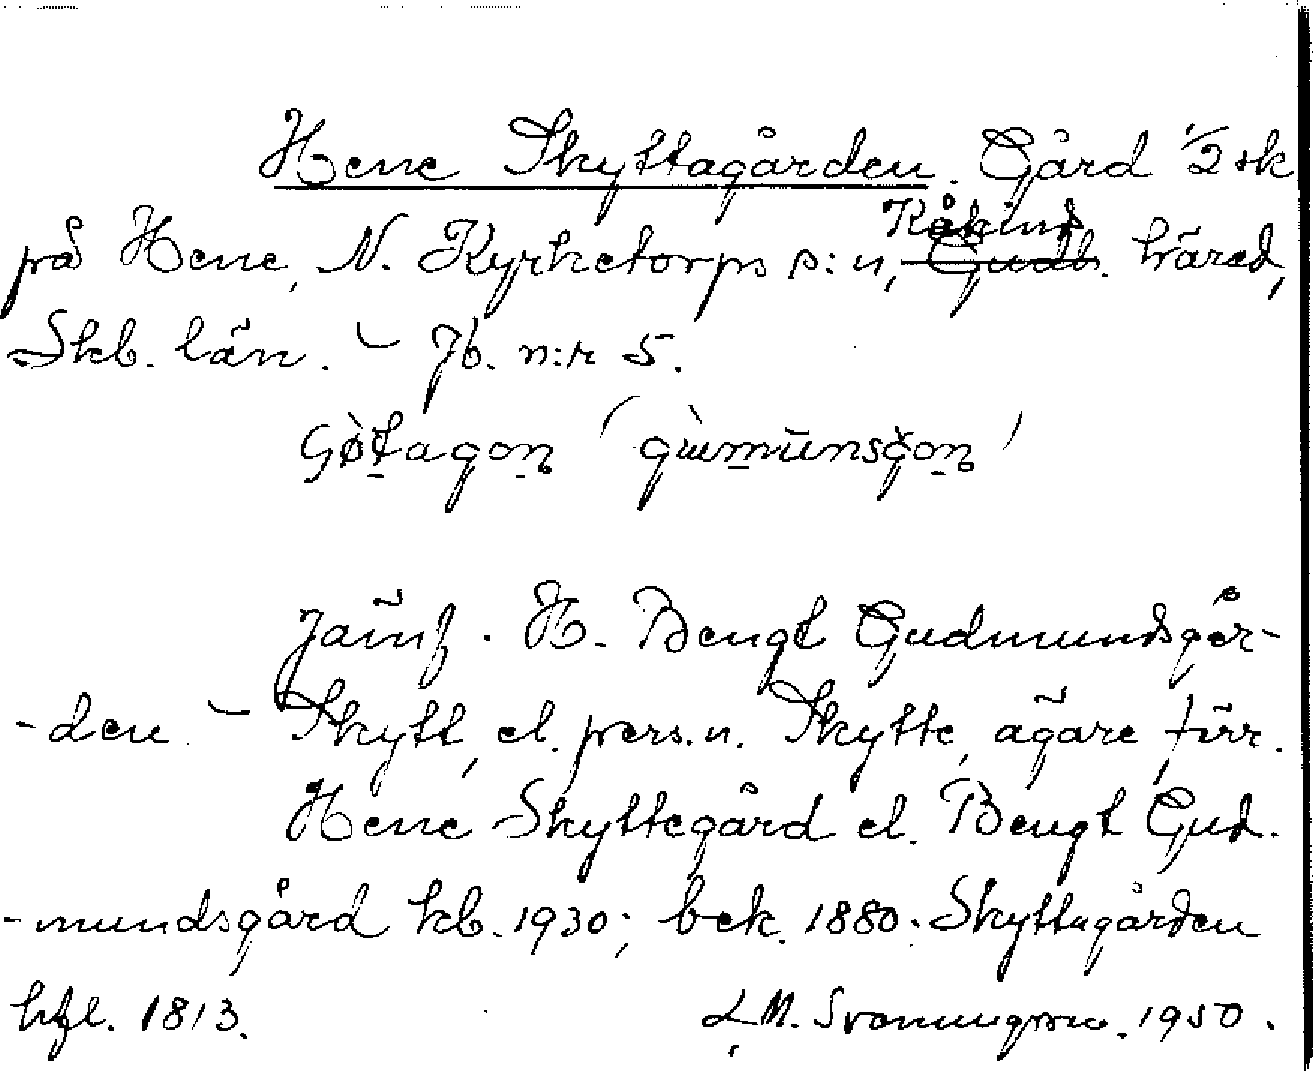 Hene Skyttagården. Gård 1/2 sk
Kåkind
på Hene, N. Kyrketorps s:n, Gudh. härad,
Skb. län. – Jb. n:r 5.
Jämf. H. Bengt Gudmundsgår-
-den. – Skytt, el. pers.n. Skytte, ägare förr.
Hene Skyttegård el. Bengt Gud-
-mundsgård kb. 1930; bek. 1880. Skyttagården
hfl. 1813. 1950.